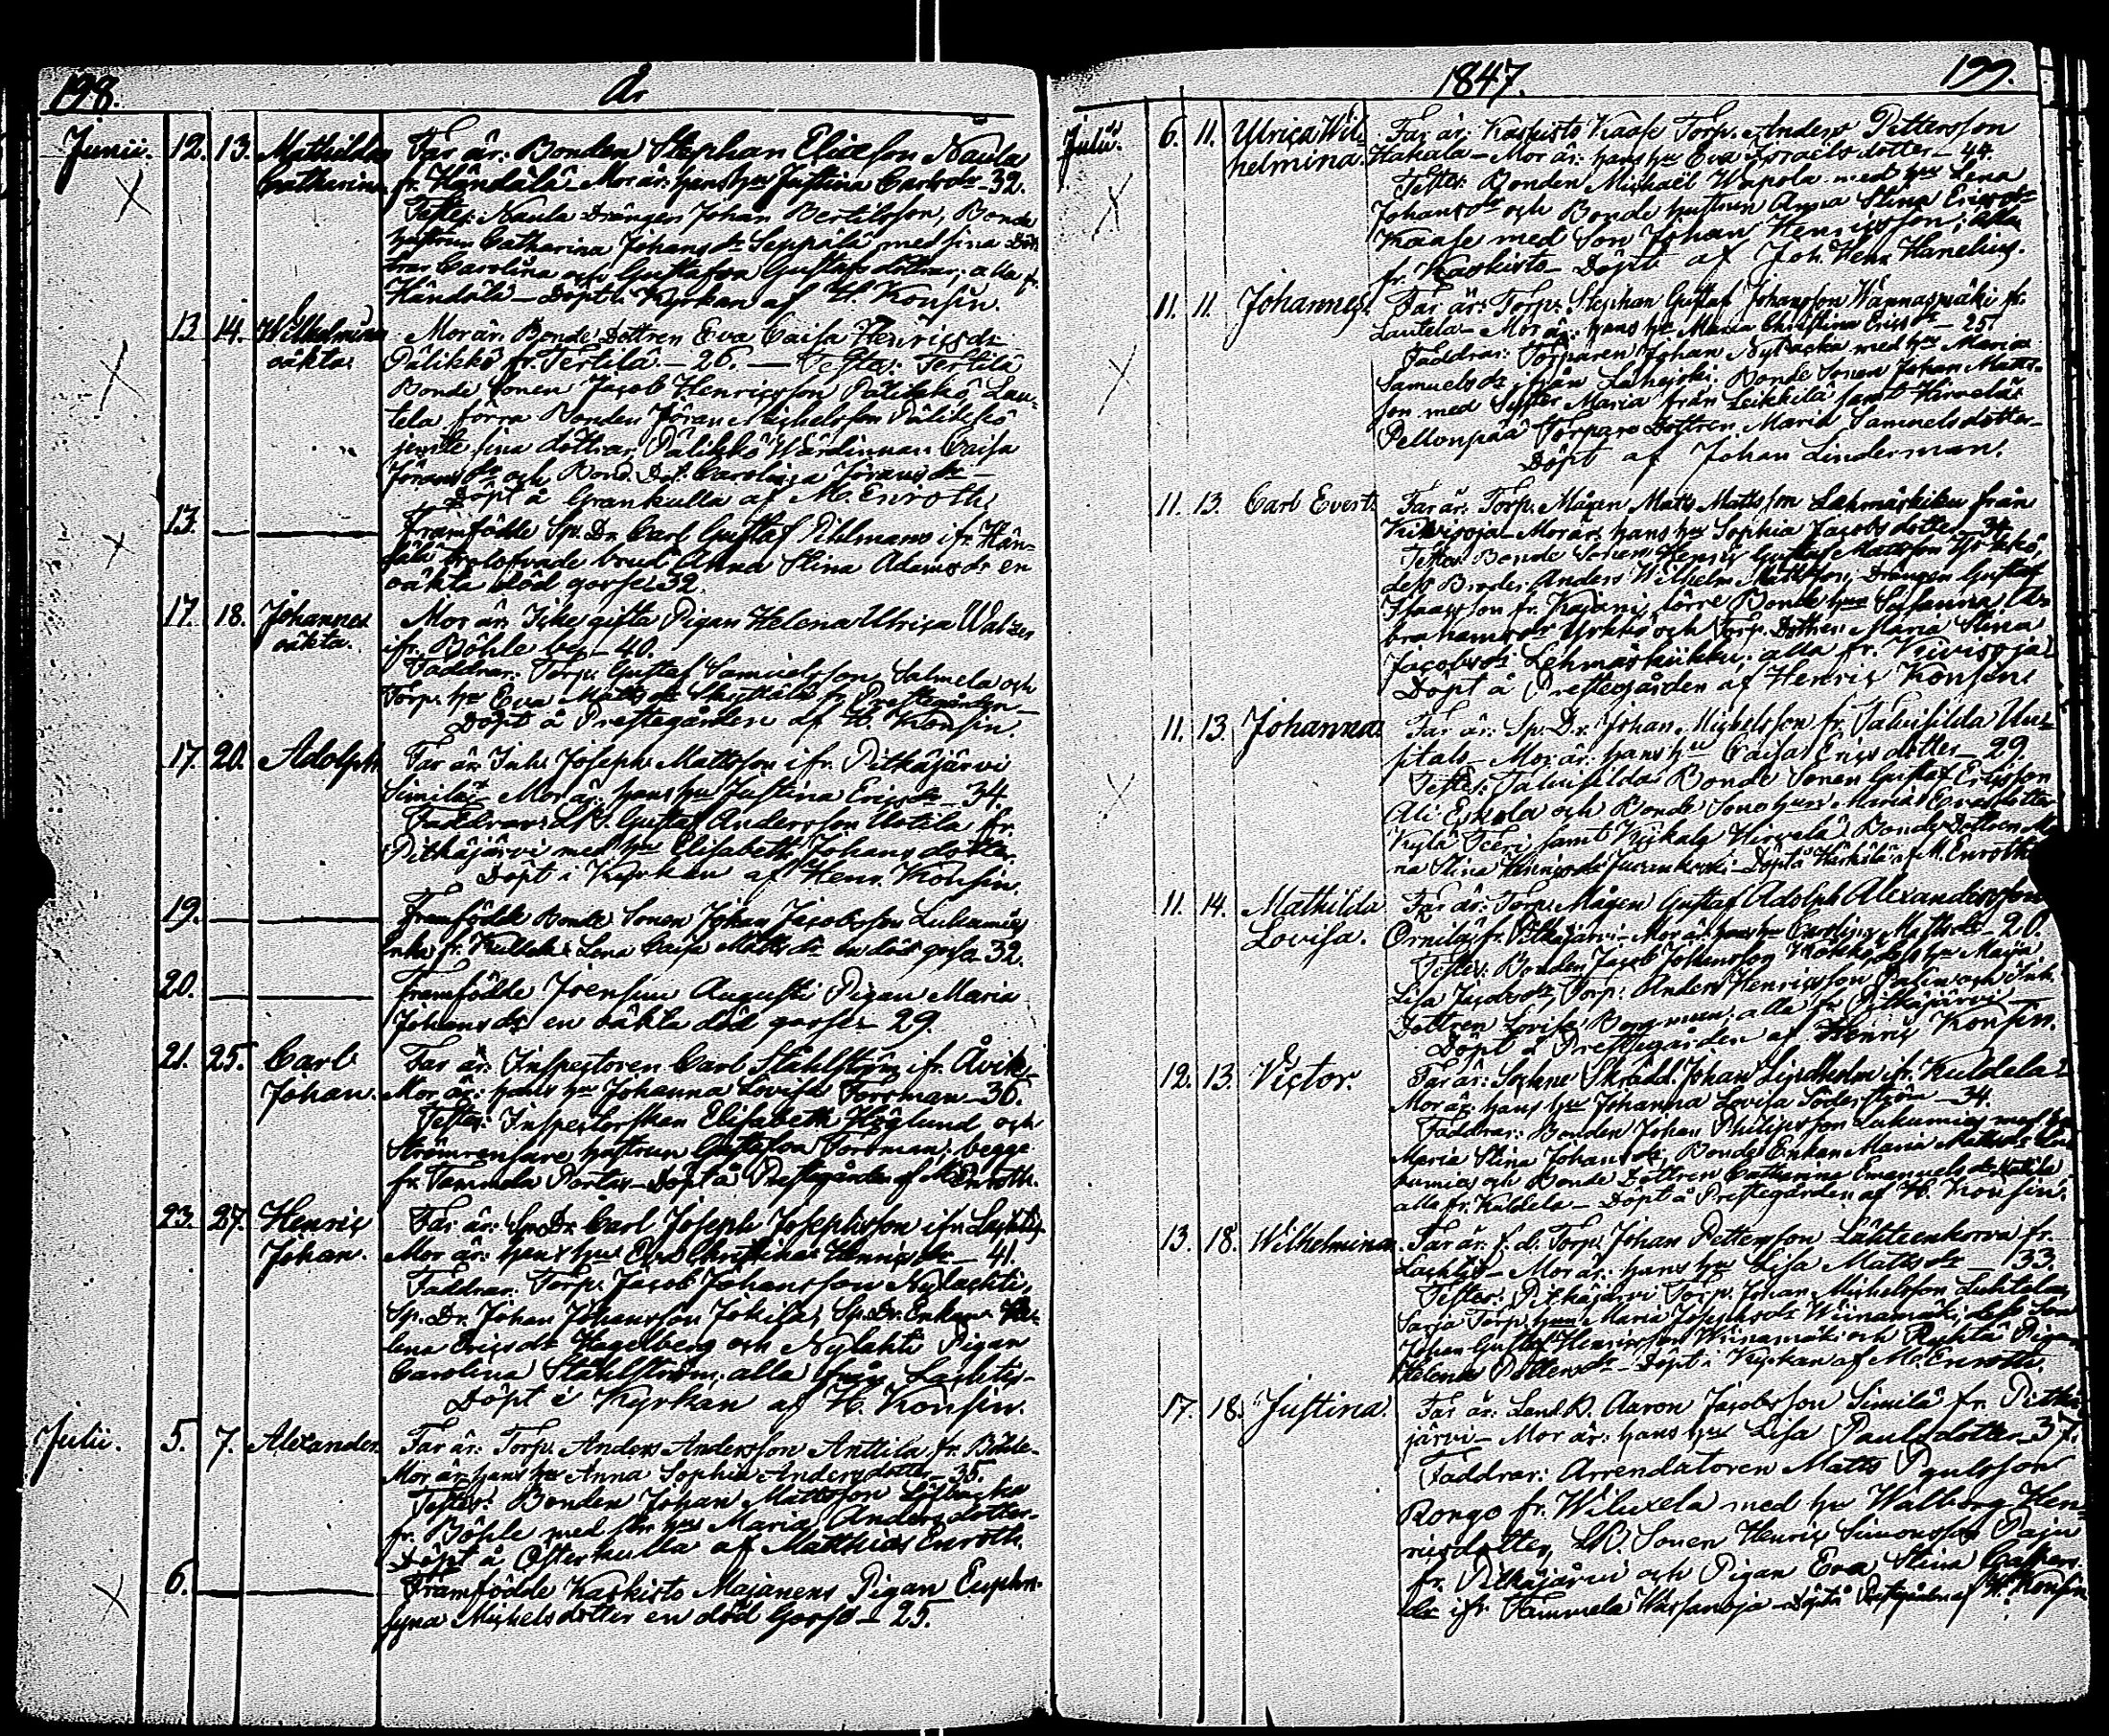 198. År
Junii. 12. 13. Mathilda Far är: Bonden Stephan Ericsson Naula
Catharina fr. Händälä - Mor är: hans hu Justina Carlsdr - 32.
Testes: Naula Drängen Johan Bertilsson, Bonde
hustrun Catharina Johansdr Seppälä med sina Dött
rar Carolina och Gustafva Gustafsdöttrar; alla fr.
Händälä - Döpt i Kyrkan af H. Konsin.
13. 14. Wilhelmina Mor är: Bonde Dottren Eva Caisa Henricsdr
oäkta. Pälikkö fr. Tertilä - 26. - Testes: Tertilä
Bonde Sonen Jacob Henricsson Pälikkö, Lau-
tela förra Bonden Jöran Michelsson Pälikkö
jemte sina döttrar, Pälikkö Wärdinnan Caisa
Jöransdr och Bond. Dot. Carolina Jöransdr -
Döpt å Grankulla af M. Enroth.
13. Framfödde Sp. Dr. Carl Gustaf Pihlmans ifr. Hän-
dälä trolofvade brud Anna Stina Adamsdr en
oäkta död gosse 32.
17. 18. Johannes Mor är: Icke gifta Pigan Helena Ulrica
oäkta. ifr. Böhle by - 40.
Faddrar: Torp. Gustaf Samuelsson Salmela och
Torp. hu Eva Mattsdr fr. Prestegården -
Döpt å Prestegården af H. Konsin.
17. 20. Adolph Far är: Inh. Joseph Mattsson ifr. Pitkäjärvi
Similä - Mor är: hans hu Justina Ericsdr - 34.
Faddrar: L.B. Gustaf Andersson Uotila fr.
Pitkäjärvi med hu Elisabeth Johansdotter.
Döpt i Kyrkan af Henr. Konsin.
19. Framfödde Bonde Sonen Johan Jacobsson Luhamies
Enka fr. Lena Caisa Mattsdr en död gosse 32.
20. Framfödde Joensuu Augusti Pigan Maria
Johansdr en oäkta död gosse - 29.
21. 25. Carl Far är: Inspectoren Carl Ståhlström ifr. Åvik.
Johan. Mor är: hans hu Johanna Lovisa Forsman - 36.
Testes: Inspectorskan Elisabeth Höglund och
Strömrensare hustrun Gustafva Forsman; begge
fr. Tammela Portas - Döpt å Prestegården af M. Enroth.
23. 27. Henric Far är: Sp. Dr. Carl Joseph Josephsson ifr. Lachtis
Johan. Mor är: hans hu Eva Christina Henricsdr - 41.
Faddrar: Torp. Jacob Johansson Nylachti,
Sp. Dr. Johan Johansson Jokila, Sp. Dr. Enkan He-
lena Ericsdr Hagelberg och Nylahti Pigan
Carolina Ståhlström; alla från Lachtis -
Döpt i Kyrkan af H. Konsin.
Julii. 5. 7. Alexander. Far är: Torp. Anders Andersson Anttila fr. Böhle -
Mor är hans hu Anna Sophia Andersdotter - 35.
Testes: Bonden Johan Mattsson
fr. Böhle med hu Maria Andersdotter -
Döpt å Österkulla af Matthias Enroth.
6. Framfödde Kaskisto Majanens Pigan Euphro-
syna Michelsdotter en död Gosse - 25.
1847. 199.
Julii. 6. 11. Ulrica Wil- Far är: Kaskisto Kaase Torp. Anders Pettersson
helmina. Hakala - Mor är: hans hu Eva Israelsdotter - 44.
Testes: Bonden Michaël Wapola med hu Lena
Johansdr och Bonde hustrun Anna Stina Ericsdr
Kaase med Son Johan Henricsson; alla
fr. Kaskisto - Döpt af Joh. Henr. Hanelius.
11. 11. Johannes. Far är: Torp. Stephan Gustaf Johansson Wännäsmäki fr.
Lautela - Mor är: hans hu Maria Christina Ericsdr - 25.
Faddrar: Torparen Johan Nybacka med hu Maria
Samuelsdr ifrån Lahnjoki; Bonde Sonen Johan Matts-
son med Syster Maria från Leikkilä samt Hirvelä
Pellonpää Torpare Dottren Maria Samuelsdotter -
Döpt af Johan Linderman.
11. 13. Carl Evert. Far är: Torp. Mågen Matts Mattsson från
Kivisoja - Mor är: hans hu Sophia Jacobsdotter - 34.
Testes: Bonde Sonen Henric Gustaf Mattsson
dess Broder Anders Wilhelm Mattsson, Drängen Gustaf
Isaacsson fr. Kajani, förre Bonde hun Susanna Ab-
rahamsdr och Torp. Dottren Maria Stina
Jacobsdr; alla fr. Kivisoja
Döpt å Prestegården af Henric Konsin.
11. 13. Johanna Far är: Sp. Dr. Johan Michelsson fr. Talvisilda Uu-
sitalo - Mor är: hans hu Caisa Ericsdotter - 29.
Testes: Talvisilda Bonde Sonen Gustaf Ericsson
Ali Eskola och Bonde Sons hun Maria
Kylä samt Hirvelä Bonde Dottren
na Stina Henricsdr Juvankoski - Döpt å Härkälä af M. Enroth.
11. 14. Mathilda Far är: Torp. Mågen Gustaf Adolph Alexandersson
Lovisa. fr. Pitkäjärvi - Mor är hans hu Carolina Mattsdr - 20.
Testes: Bonden Jacob Johansson dess hu Maja
Lisa Jacobsdr, Torp. Anders Henricsson och Inh.
Dottren Lovisa Bergman; alla fr. Pitkäjärvi -
Döpt å Prestegården af Henric Konsin.
12. 13. Victor. Far är: Sockne Skrädd. Johan Lindholm ifr. Kuldela -
Mor är: hans hu Johanna Lovisa Söderström - 34.
Faddrar: Bonden Johan Philipsson Luhamies med hu
Maria Stina Johansdr, Bonde Enkan Maria Mattsdr Lu-
hamies och Bonde Dottren Catharina Emanuelsdr
alla fr. Kuldela - Döpt å Prestegården af H. Konsin.
13. 18. Wilhelmina. Far är: f.d. Torp. Johan Pettersson Lähteenkorva fr.
Lachtis - Mor är: hans hu Lisa Mattsdr - 33.
Testes: Pitkäjärvi Torp. Johan Michelsson
Sarja Torp. hun Maria Josephsdr Wiinamäki dess Son
Johan Gustaf Henricsson Wiinamäki och Pigan
Helena Pettersdr - Döpt i Kyrkan af M. Enroth.
17. 18. Justina. Far är: Land. B. Aaron Jacobsson Similä fr. Pitkä-
järvi - Mor är: hans hu Lisa Paulsdotter 37.
Faddrar: Arrendatoren Matts Paulsson
Rongo fr. Wiluxela med hu Walborg Hen-
ricsdotter, L.B. Sonen Henric Simonsson Paju
fr. Pitkäjärvi och Pigan Eva Stina Caspers-
dr ifr. Tammela - Döpt å Prestgården af H. Konsin